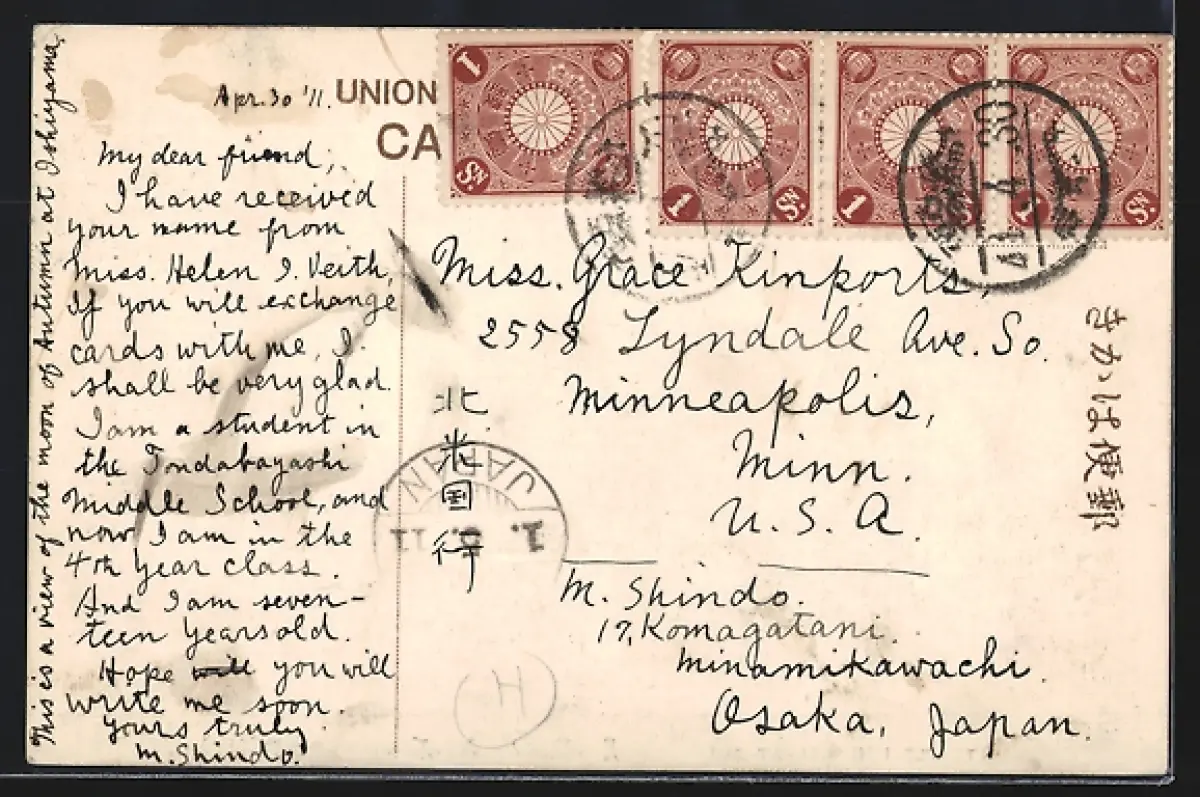 This is a view of the moon of Autumn at Ishiyama.
Apr. 30 '11.
UNION
CA
My dear friend;
I have received
your name from
Miss. Helen I. Veith,
If you will exchange
cards with me, I
shall be very glad.
I am a student in
the Tondabayashi
Middle School, and
now I am in the
4th year class.
And I am seven-
teen years old.
Hope will you will
write me soon.
Yours truly
M. Shindo.
1 Sn.
1 Sn.
1 Sn.
1 Sn.
4 30
Miss. Grace Kinports,
2558 Lyndale Ave. So.
Minneapolis,
Minn.
U. S. A.
北米国行
JAPAN
1. 5. 11
きかは便郵
M. Shindo.
17, Komagatani.
Minamikawachi
Osaka, Japan.
H